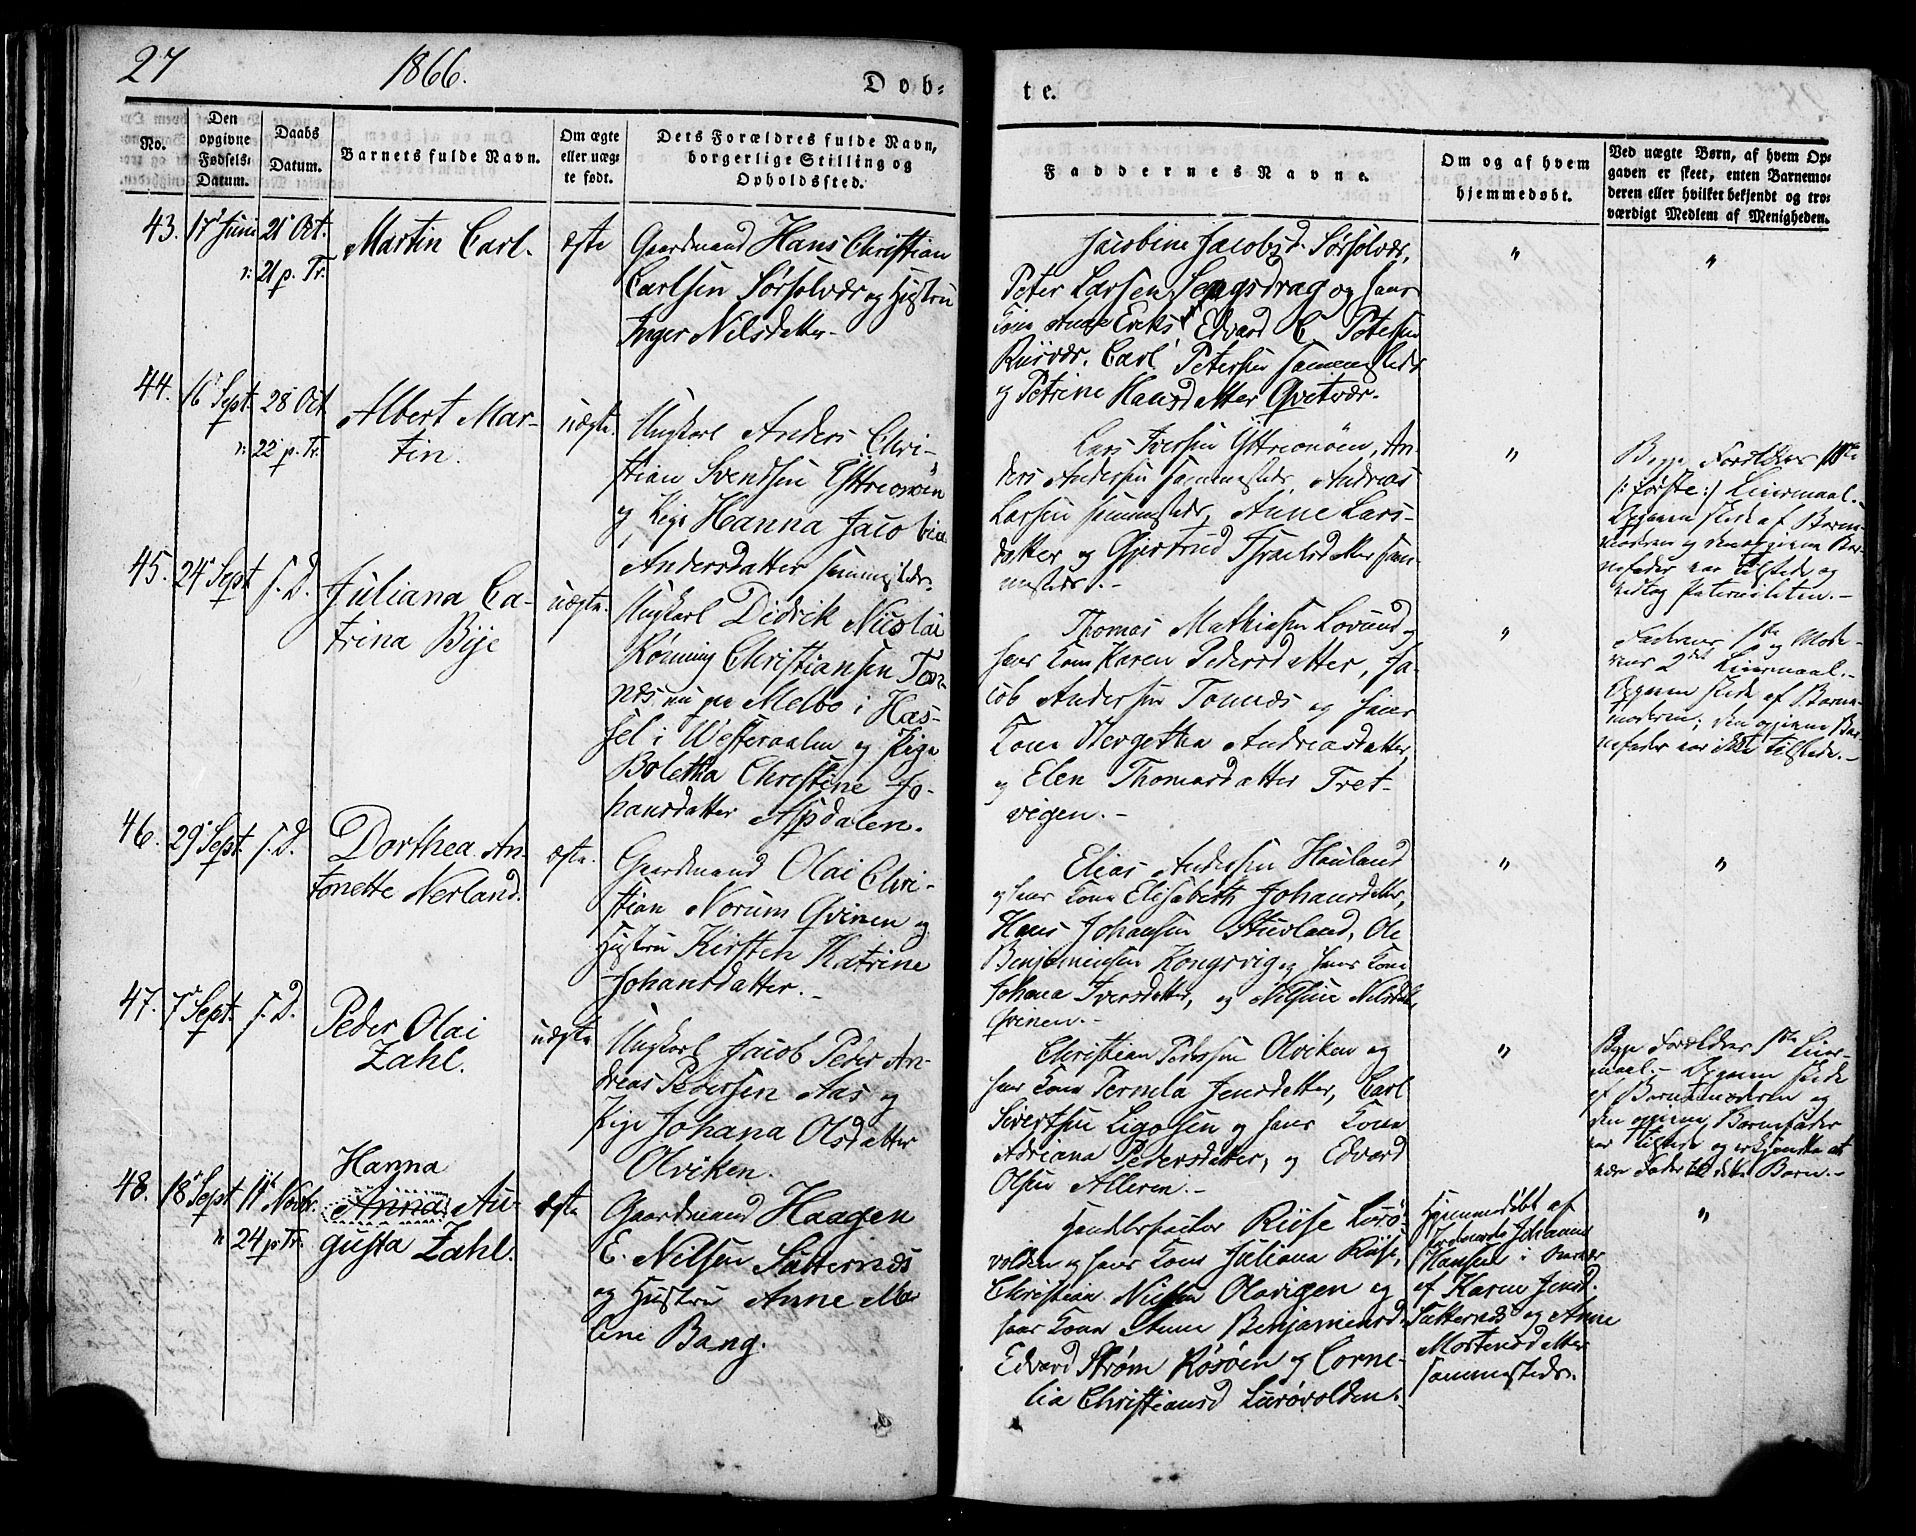 27
1866.
Dob-
te.
No.
Den opgivne Fødsels-Datum.
Daabs Datum.
Barnets fulde Navn.
Om ægte eller uægte født.
Dets Forældres fulde Navn, borgerlige Stilling og Opholdssted.
Faddernes Navne.
Om og af hvem hjemmedøbt.
Ved uægte Børn, af hvem Opgaven er skeet, enten Barnemoderen eller hvilket bekjendt og troværdigt Medlem af Menigheden.
43.
17 Juni
21 Oct.
21 p. Tr.
Martin Carl.
ægte
Gaardmand Hans Christian
Carlsen Sørsolvær og Hustru
Inger Nilsdatter.
Jacobine Jacobsd. Sørsolvær,
Peter Larsen Sengsdrag og hans
Kone Edvard C Petersen
Carl Petersen sammesteds
og Petrine Hansdatter Qvitvær.
"
"
44.
16 Sept.
28 Oct
22 p. Tr.
Albert Mar-
tin.
uægte.
Ungkarl Anders Chri-
stian Svendsen Yttreonøen
og Pige Hanna Jacobia
Andersdatter sammesteds.
Lars Iversen Yttreonøen, An-
ders Andersen sammesteds, Andreas
Larsen sammesteds, Anne Lars-
datter og Gjertrud Israelsdatter sam-
mesteds.-
"
Begge Forældres 1ste
/: første :/ Leiermaal.-
Opgaven skede af Barne-
moderen og den opgivne Bar-
nefader var tilstede og
vedtog Paterniteten.-
45.
24 Sept
s. D.
Juliana Ca-
trina Bye
uægte.
Ungkarl Didrik Nicolai
Rønning Christiansen Ton-
nes, nu paa Melbo i Has-
sel i Westeraalen og Pige
Boletha Christine Jo-
hansdatter Aspdalen.
Thomas Mathiesen Lovund og
hans Kone Karen Pedersdatter, Ja-
cob Andersen Tonnes og hans
Kone Hergetha Andreasdatter,
og Elen Thomasdatter Tret-
vigen.-
"
Faderens 1ste og Mode-
rens 2det Leiermaal.-
Opgaven skede af Barne-
moderen; den opgivne Bar-
nefader var ikke tilstede.-
46.
29 Sept.
s. D.
Dorthea An-
tonette Nerland.
ægte.
Gaardmand Olai Chri-
stian Norum Qvinen og
Hustru Kirsten Katrine
Johansdatter.-
Elias Andersen Hauland
og hans Kone Elisabeth Johansdatter,
Hans Johansen Stuvland, Ole
Benjaminsen Kongsvig og hans Kone
Johana Iversdatter, og Nilsine Nilsdatter
Qvinen.-
"
"
47.
7 Sept.
s. D.
Peder Olai
Zahl.
uægte
Ungkarl Jacob Peder An-
dreas Pedersen Aas og
Pige Johana Olsdatter
Olviken.
Christian Pedersen Olviken og
hans Kone Pernela Jensdatter, Carl
Sivertsen Ligosen og hans Kone
Adriana Pedersdatter, og Edvard
Olsen Alleren.-
"
Begge Forældres 1ste Leier-
maal.- Opgaven skede
af Barnemoderen og
den opgivne Barnefader
var tilstede og erkjendte at
være Fader til dette Barn.-
48.
18 Sept
11 Novbr.
24 p. Tr.
Hanna
Anna Au-
gusta Zahl.
ægte
Gaardmand Haagen
E. Nilsen Sætternæs
og Hustru Anne Ma
lene Bang.
Handelsfactor Riise Lurø-
volden og hans Kone Juliana Riise,
Christian Nilsen Olavigen og
hans Kone Anne Benjaminsd.
Edvard Strøm Rosøen og Corne-
lia Christiansd Lurøvolden.
Hjemmedøbt af
Johanna
Hansen i
af Karen Jensd.
Sætternæs og Anne
Mortensdatter
sammesteds.
"